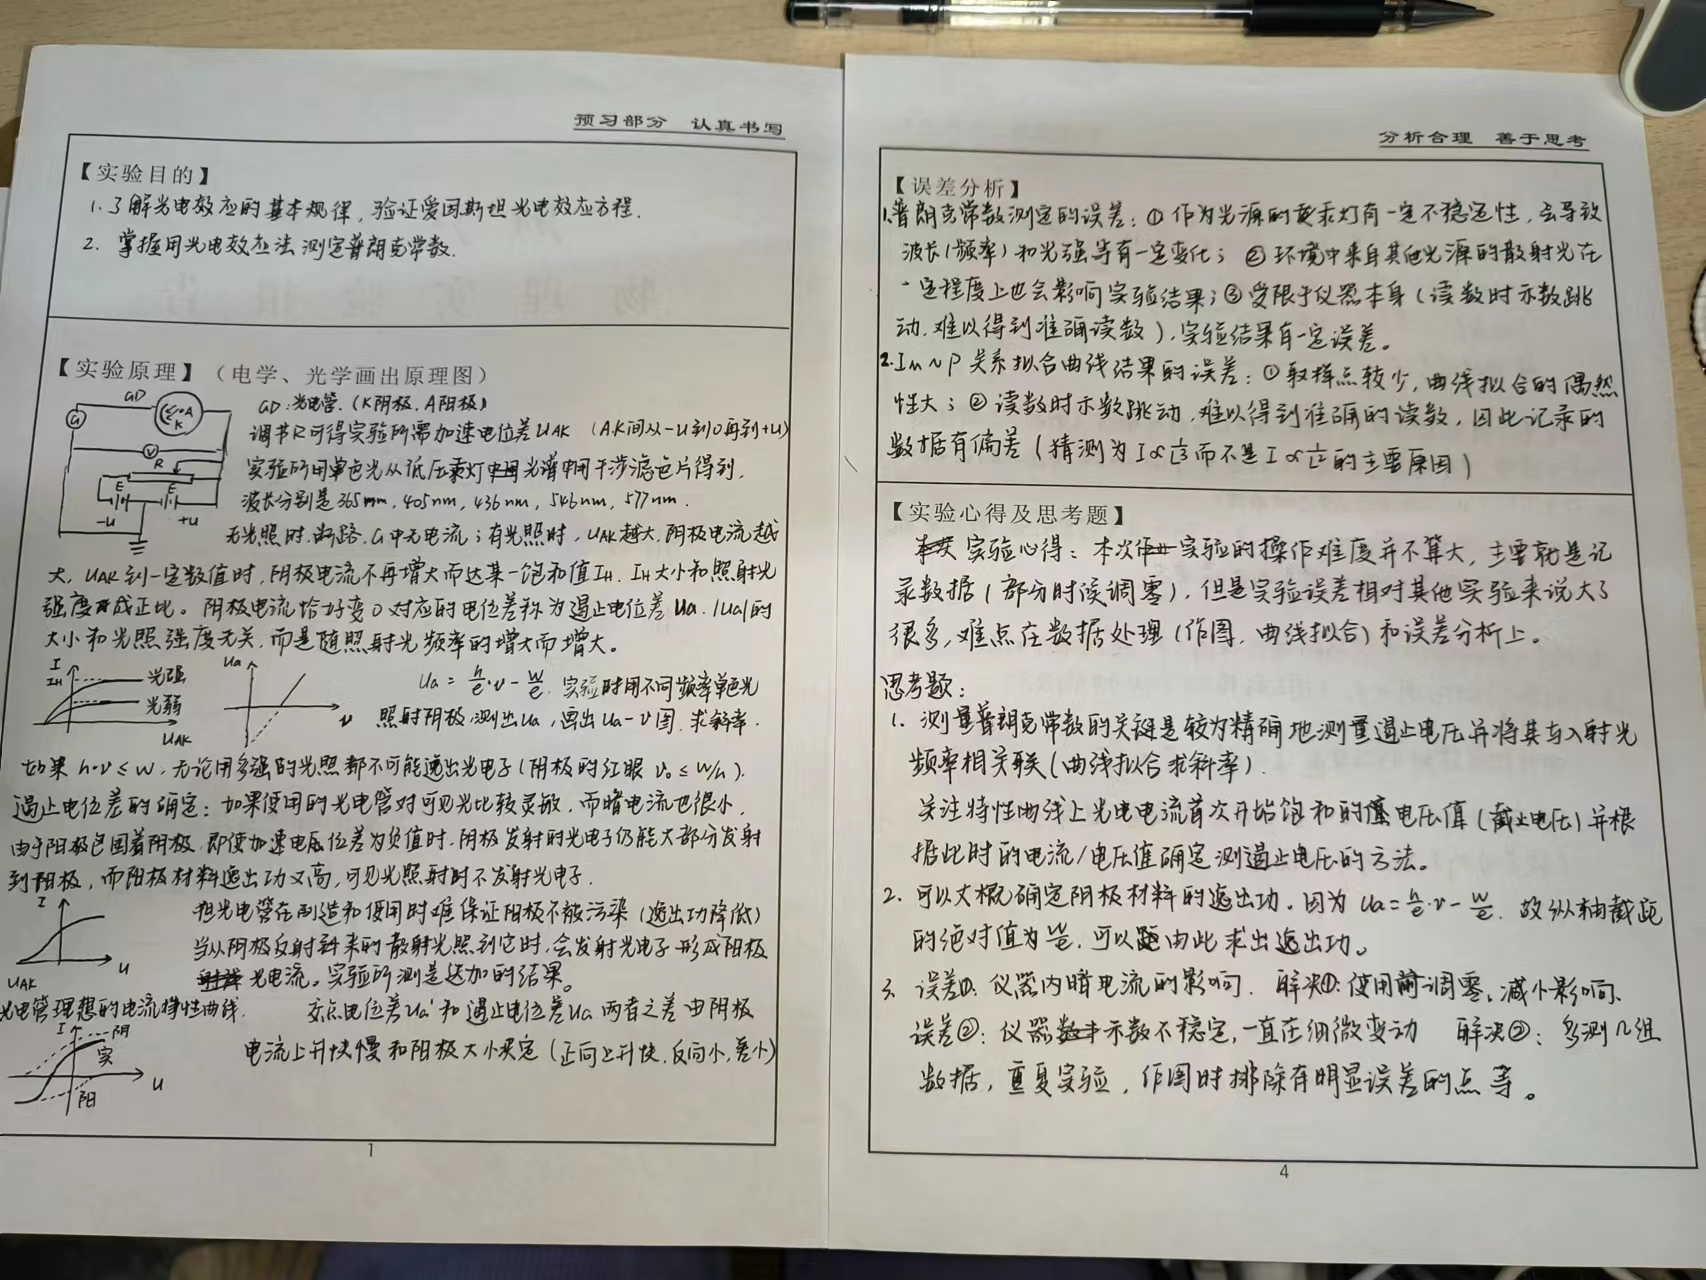 预习部分 认真书写
【实验目的】
1. 了解光电效应的基本规律，验证爱因斯坦光电效应方程.
2. 掌握用光电效应法测定普朗克常数.
【实验原理】（电学、光学画出原理图）
GD
G
A
K
V
R
E
E
-U
+U
GD:光电管.(K阴极,A阳极)
调节R可得实验所需加速电位差UAK (AK间从-U到0再到+U)
实验所用单色光从低压汞灯光谱中用干涉滤色片得到.
波长分别是365nm, 405nm, 436nm, 546nm, 577nm.
无光照时,断路,G中无电流;有光照时,UAK越大,阴极电流越
大,UAK到一定数值时,阴极电流不再增大而达某一饱和值IH. IH大小和照射光
强度成正比。阴极电流恰好变0对应的电位差称为遏止电位差Ua. |Ua|的
大小和光照强度无关,而是随照射光频率的增大而增大。
I
IH
光强
光弱
UAK
Ua
ν
Ua = h/e·ν - W/e. 实验时用不同频率单色光
照射阴极,测出Ua,画出Ua-ν图,求斜率.
如果 h·ν ≤ W, 无论用多强的光照都不可能逸出光电子(阴极的红限 ν0 ≤ W/h).
遏止电位差的确定：如果使用的光电管对可见光比较灵敏,而暗电流也很小.
由于阳极包围着阴极,即使加速电位差为负值时,阴极发射的光电子仍能大部分发射
到阳极,而阳极材料逸出功又高,可见光照射时不发射光电子.
I
UAK
U
光电管理想的电流特性曲线.
但光电管在制造和使用时难保证阳极不被污染(逸出功降低)
当从阴极反射过来的散射光照到它时,会发射光电子形成阳极
光电流。实验所测是迭加的结果。
交点电位差Ua'和遏止电位差Ua两者之差由阴极
电流上升快慢和阳极大小决定(正向上升快,反向小,差小)
I
阴
实
U
阳
1
分析合理 善于思考
【误差分析】
1.普朗克常数测定的误差：①作为光源的汞灯有一定不稳定性,会导致
波长(频率)和光强等有一定变化；②环境中来自其他光源的散射光在
一定程度上也会影响实验结果；③受限于仪器本身(读数时示数跳
动,难以得到准确读数),实验结果有一定误差。
2.Im~P 关系拟合曲线结果的误差：①取样点较少,曲线拟合的偶然
性大；②读数时示数跳动,难以得到准确的读数,因此记录的
数据有偏差(猜测为I∝1/r³而不是I∝1/r²的主要原因)
【实验心得及思考题】
实验心得：本次实验的操作难度并不算大,主要就是记
录数据(部分时候调零),但是实验误差相对其他实验来说大了
很多,难点在数据处理(作图,曲线拟合)和误差分析上。
思考题：
1. 测量普朗克常数的关键是较为精确地测量遏止电压并将其与入射光
频率相关联(曲线拟合求斜率).
关注特性曲线上光电电流首次开始饱和的电压值(截止电压)并根
据此时的电流/电压值确定测遏止电压的方法。
2. 可以大概确定阴极材料的逸出功. 因为 Ua = h/e·ν - W/e. 故纵轴截距
的绝对值为W/e, 可以由此求出逸出功。
3. 误差①:仪器内暗电流的影响. 解决①:使用前调零,减小影响.
误差②:仪器示数不稳定,一直在细微变动 解决②:多测几组
数据,重复实验,作图时排除有明显误差的点等。
4